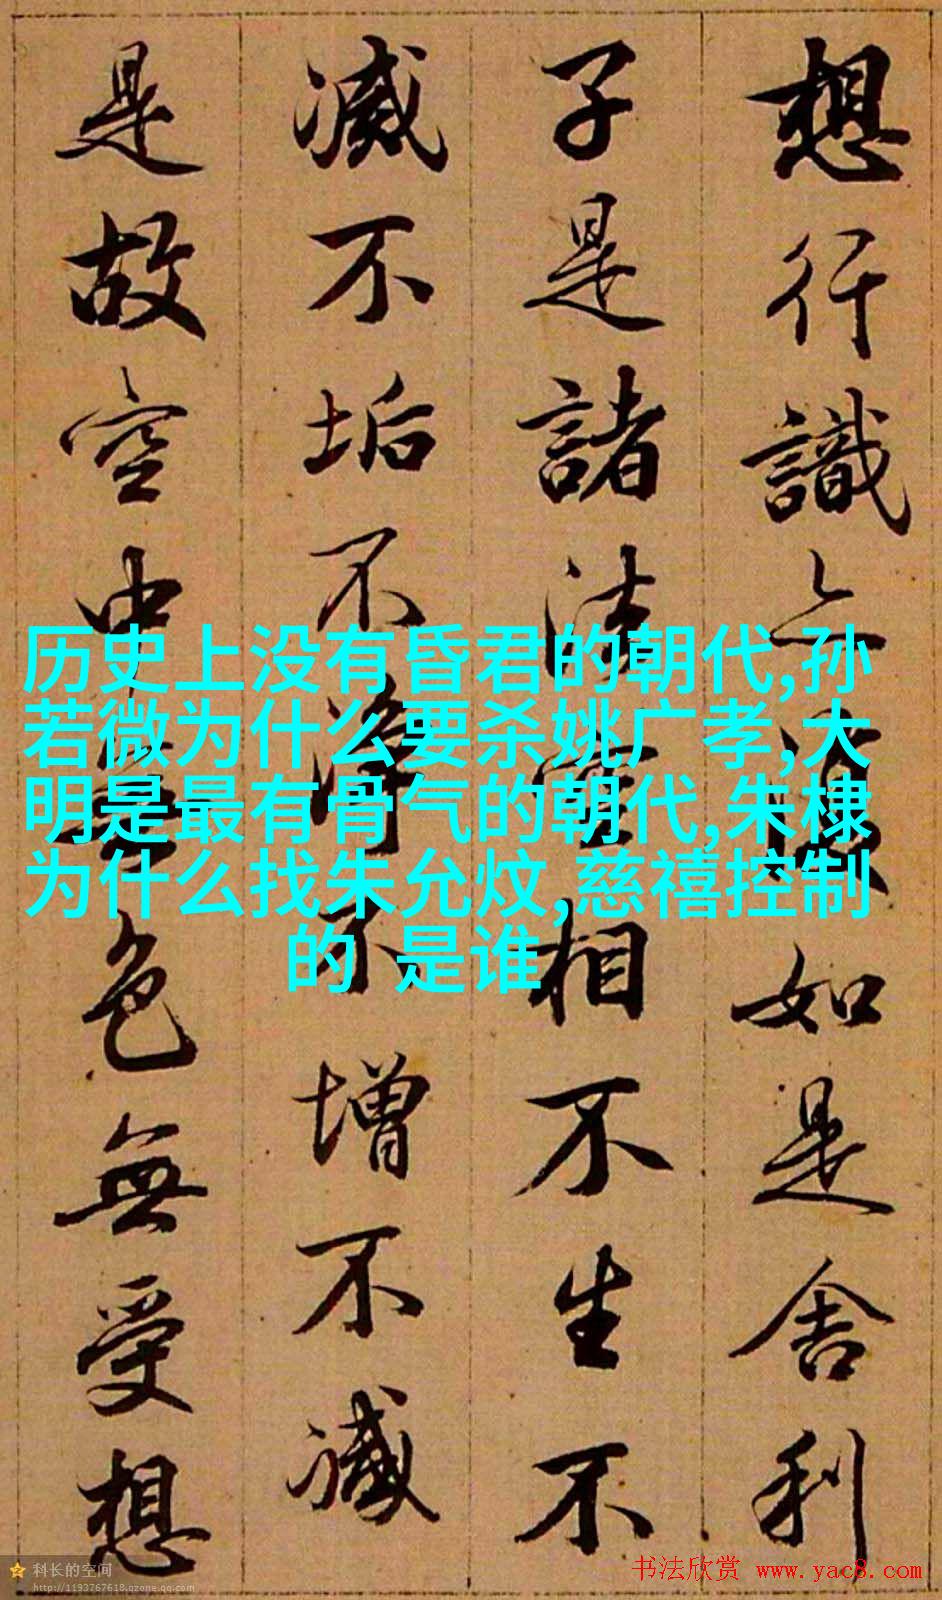 想行識亦復如是舍利
子是諸法空相不生不
滅不垢不淨不增不減
是故空中無色無受想
历史上没有昏君的朝代,孙
若微为什么要杀姚广孝,大
明是最有骨气的朝代,朱棣
为什么找朱允炆,慈禧控制
的 是谁
科长的空间
http://1193767618.qzone.qq.com
书法欣赏 www.yac8.com